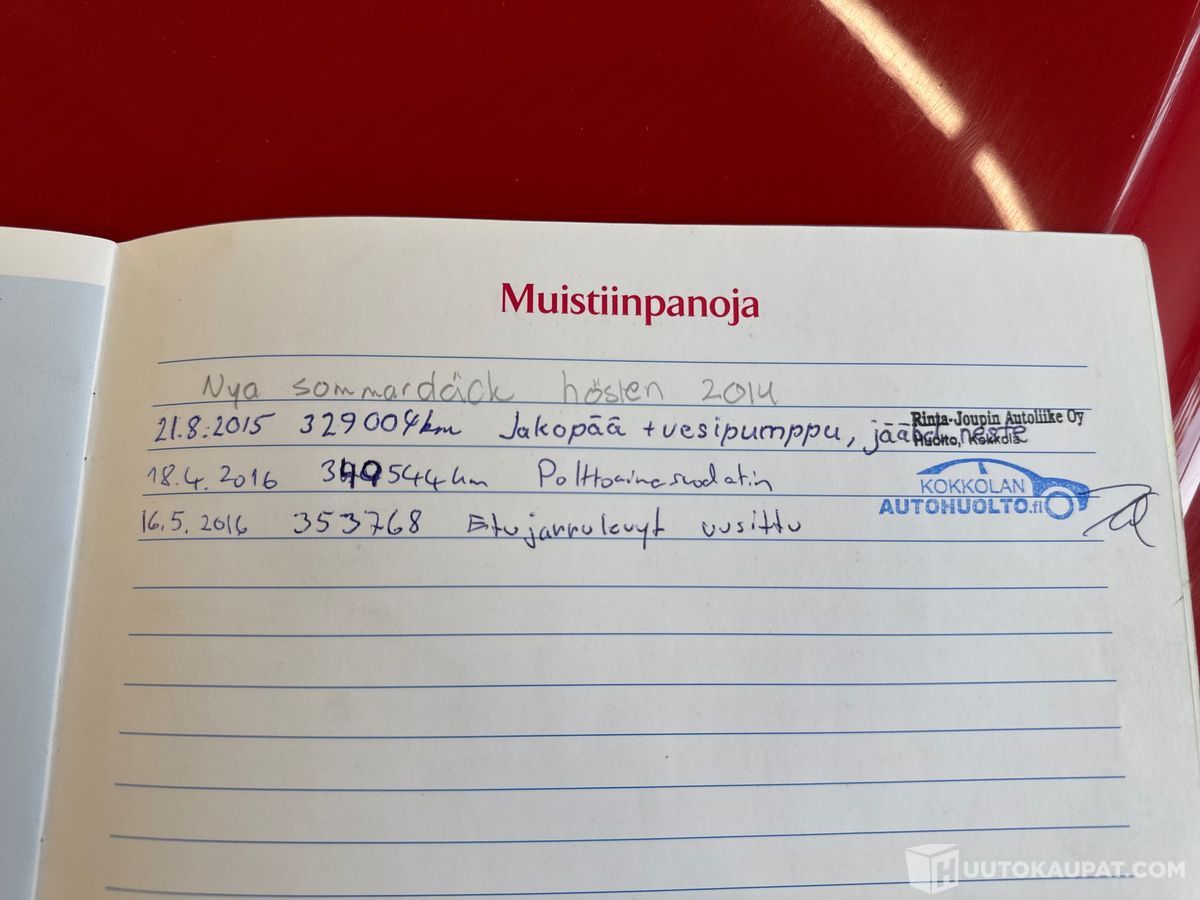 Muistiinpanoja
Nya sommardäck hösten 2014
21.8.2015 329004km Jakopää + vesipumppu, jäähd. neste
Rinta-Joupin Autoliike Oy
Huolto, Kokkola
18.4.2016 349544km Polttoainesuodatin
KOKKOLAN
AUTOHUOLTO.fi
16.5.2016 353768 Etujarrulevyt uusittu
HUUTOKAUPAT.COM